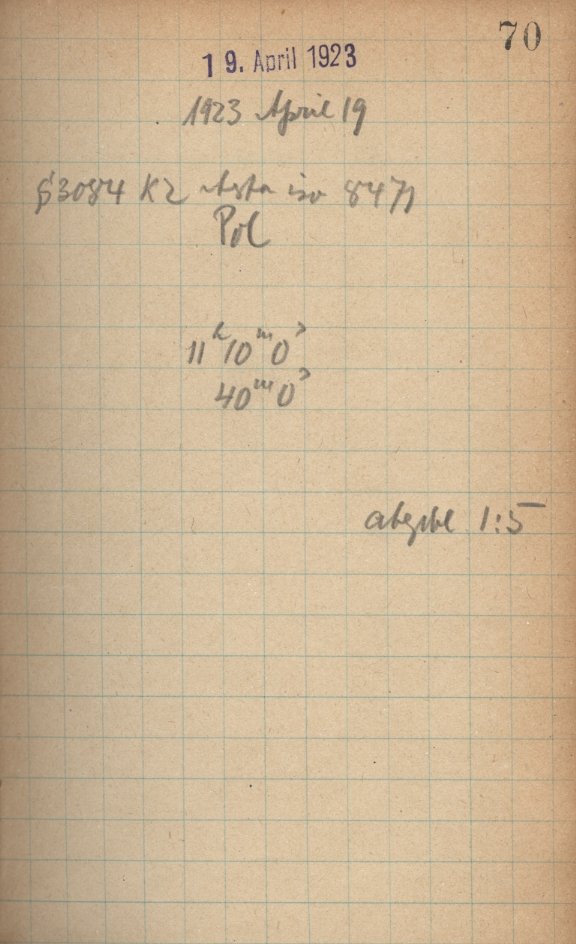 70
19. April 1923
1923 April 19
§3084 K2 iso 8471
Pol
11ʰ10ᵐ0ˢ
40ᵐ0ˢ
1:5